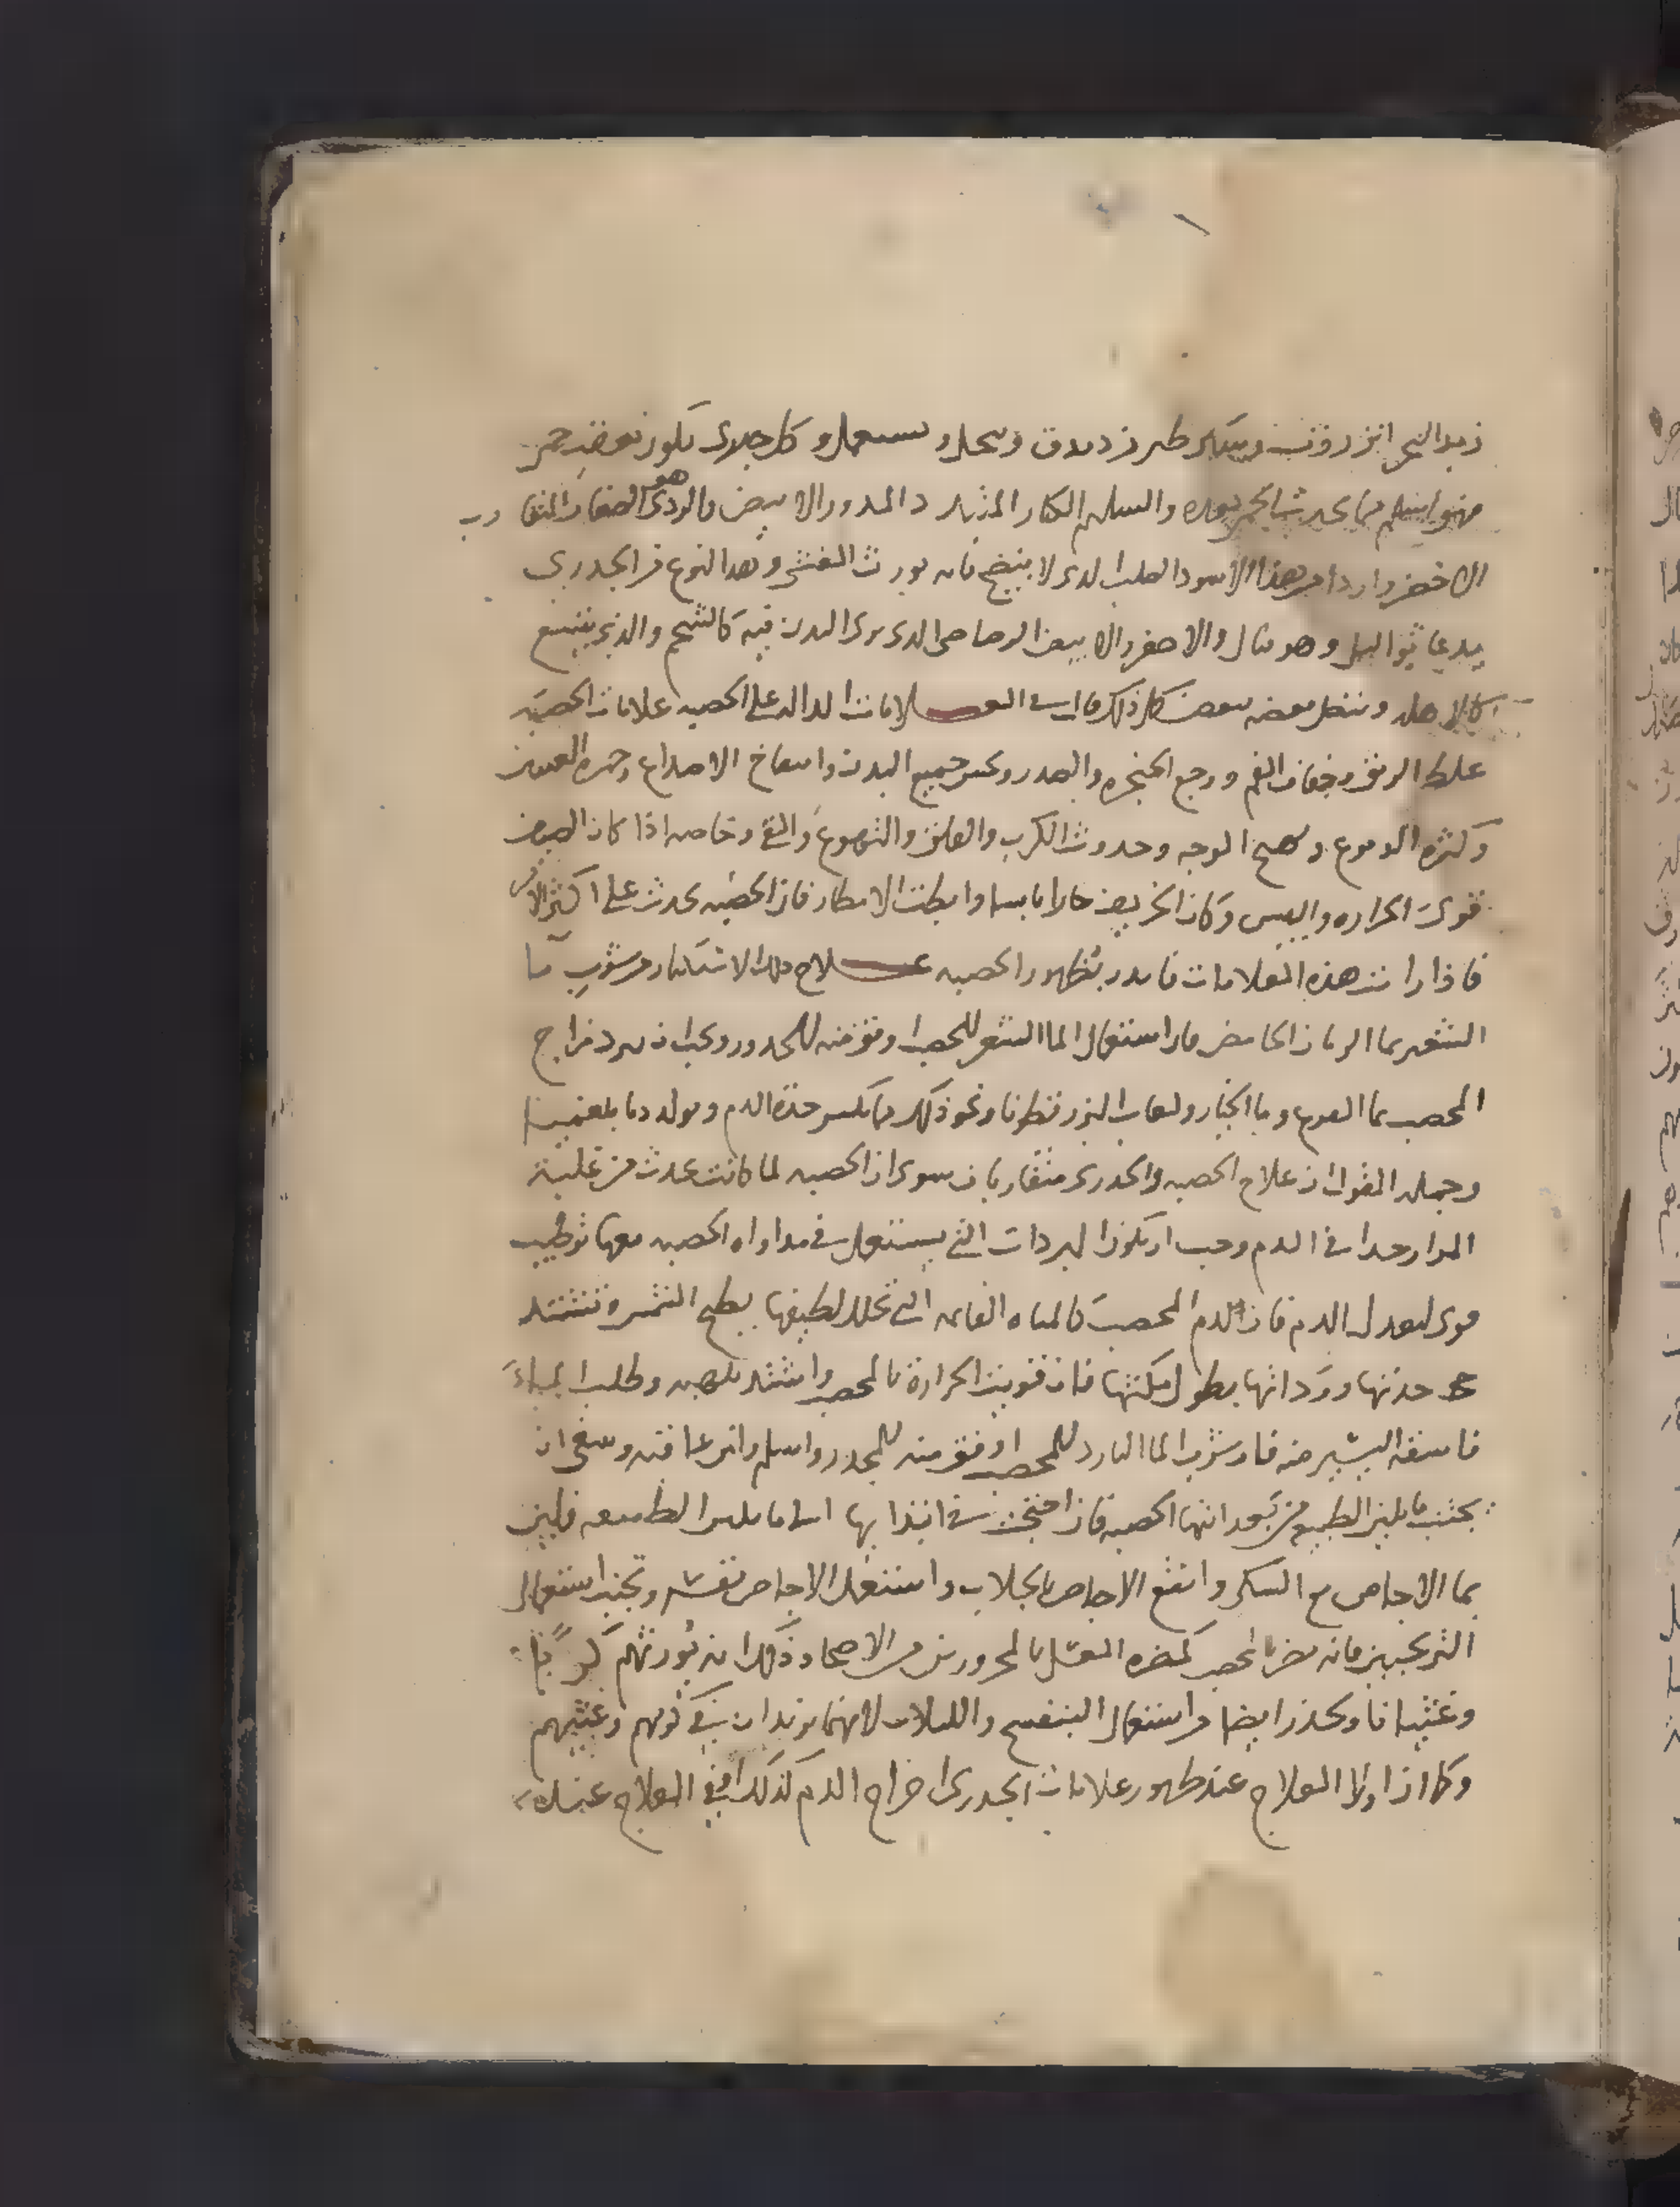 زبد البحر انزروت وسكر طبرزد يدق وينخل ويستعمل وكل جدري يكون بعقب حمى
فهو اسلم مما يحدث الحمى بعده والسليم الكبار المتبدد المدور الابيض والردى هو الصغار المتقارب
الاخضر واردا من هذا الاسود الصلب الذى لا ينضج فانه يورث الغشى وهذا النوع من الجدري
يدعا ثواليل وهو قتال والاصفر والابيض الرصاصى الذى يرى البدن فيه كالشحم والذي يتسع
وينصل بعضه ببعض كل ذلك قاتل العلامات الدالة على الحصبه علامات الحصبه
غلظ الريق وجفاف الفم ووجع الحنجره والصدر ونخس جميع البدن وانتفاخ الاصداغ وحمره العينين
وكثره الدموع وتهبج الوجه وحدوث الكرب والقلق والتهوع والقئ وخاصه اذا كان الصيف
قوى الحراره واليبس وكان الخريف حارا يابسا وابطت الامطار فان الحصبه تحدث على اكثر الامر
فاذا رات هذه العلامات فانذر بظهور الحصبه علاج ذلك الاستكثار من شرب ما
الشعير بما الرمان الحامض فان استعمال الما الشعير للمحصب اوفق منه للمجدور ويجب ان يبرد مزاج
المحصب بما القرع وما الخيار ولعاب البزر قطونا ونحو ذلك مما يكسر حدة الدم ويولد دما بلغميا
وجمله القول ان علاج الحصبه والجدرى متقاربان سوى ان الحصبه لما كانت تحدث من غلبة
المرار جدا فى الدم وجب ان يكون المبردات التي يستعمل في مداواه الحصبه معها ترطيب
قوى ليعدل الدم فان الدم المحصب كالمياه القائمه التى تحلل لطيفها بطبخ الشمس وتشتد
حدتها ورداتها بطول مكثها فان قويت الحرارة بالمحصب واشتد تلهبه وطلب الماء
فاسقه اليسير منه فان شرب الما البارد للمحصب اوفق منه للمجدور واسلم وابر عاقبه وينبغى ان
يجتنب ما يلين الطبيعه من بعد انتها الحصبه فان احتجت في ابتدايها الى ما يلين الطبيعه فليين
بما الاجاص مع السكر وانقع الاجاص بالجلاب واستعمل الاجاص نفسه وتجنب استعمال
الترنجبين فانه مضر بالمحصب كمضره العسل بالمحرورين من الاصحا وذلك انه يورثهم كربا
وغثيانا ويحذر ايضا من استعمال البنفسج واللبلاب لانهما يزيدان في كربهم وغثيهم
وكما ان اول العلاج عند ظهور علامات الجدرى اخراج الدم كذلك في العلاج عند